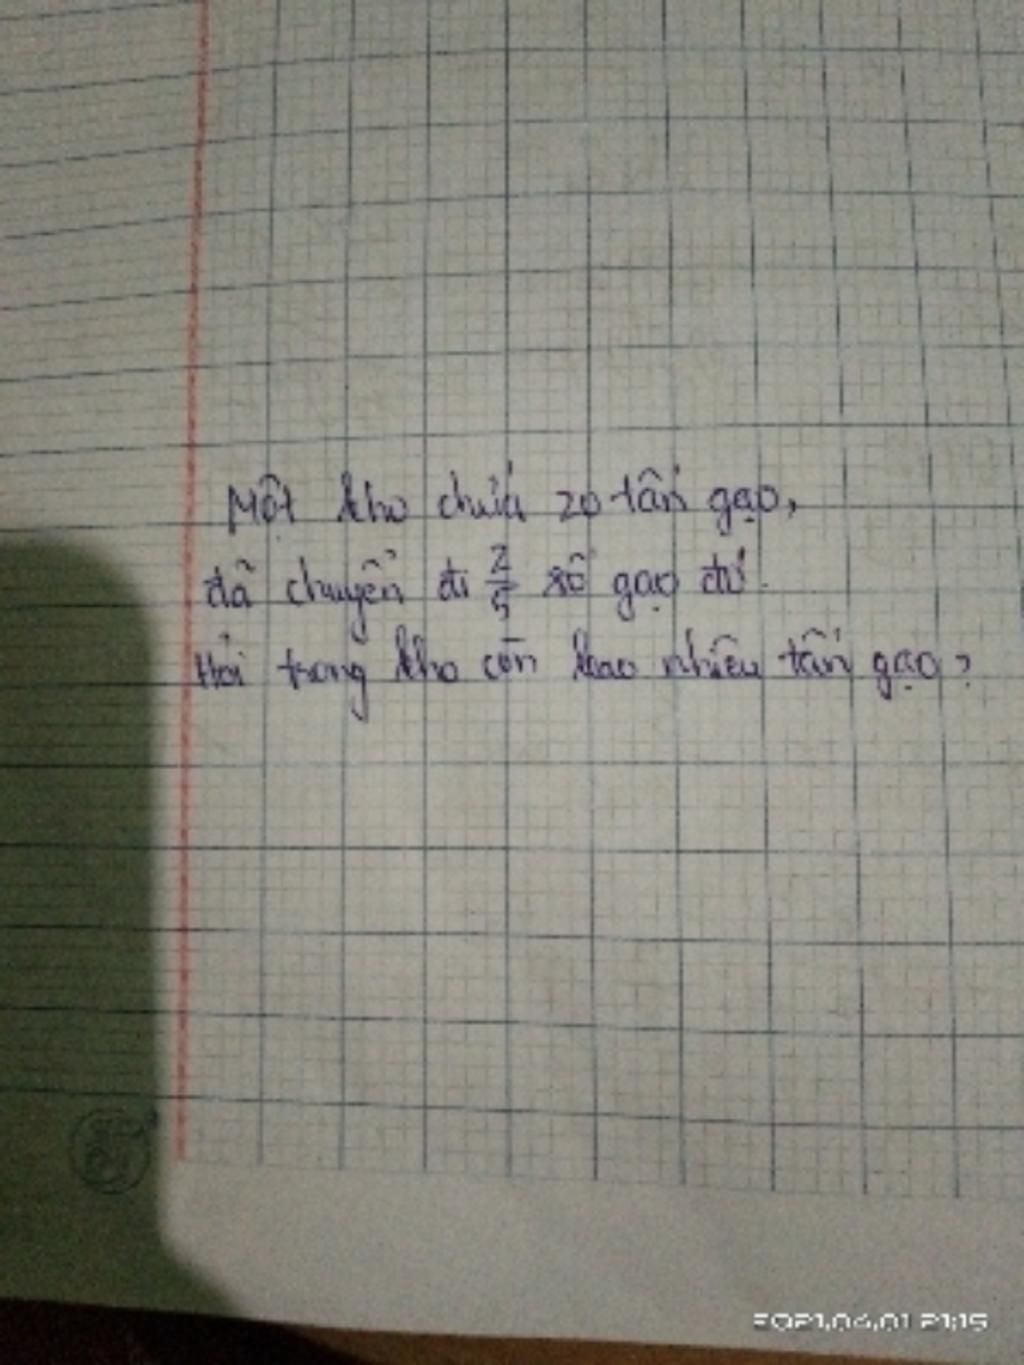 Một kho chứa 20 tấn gạo,
đã chuyển đi 2/5 số gạo đó.
Hỏi trong kho còn bao nhiêu tấn gạo?
2021.04.01 21:15